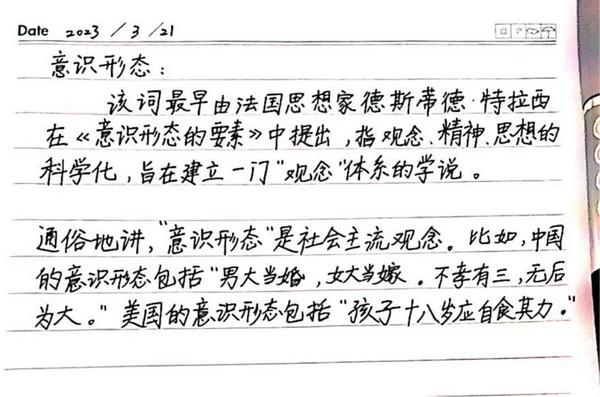 Date 2023 / 3 / 21
意识形态：
该词最早由法国思想家德斯蒂德·特拉西
在《意识形态的要素》中提出，指观念、精神、思想的
科学化，旨在建立一门"观念"体系的学说。
通俗地讲，"意识形态"是社会主流观念。比如，中国
的意识形态包括"男大当婚，女大当嫁。不孝有三，无后
为大。"美国的意识形态包括"孩子十八岁应自食其力。"